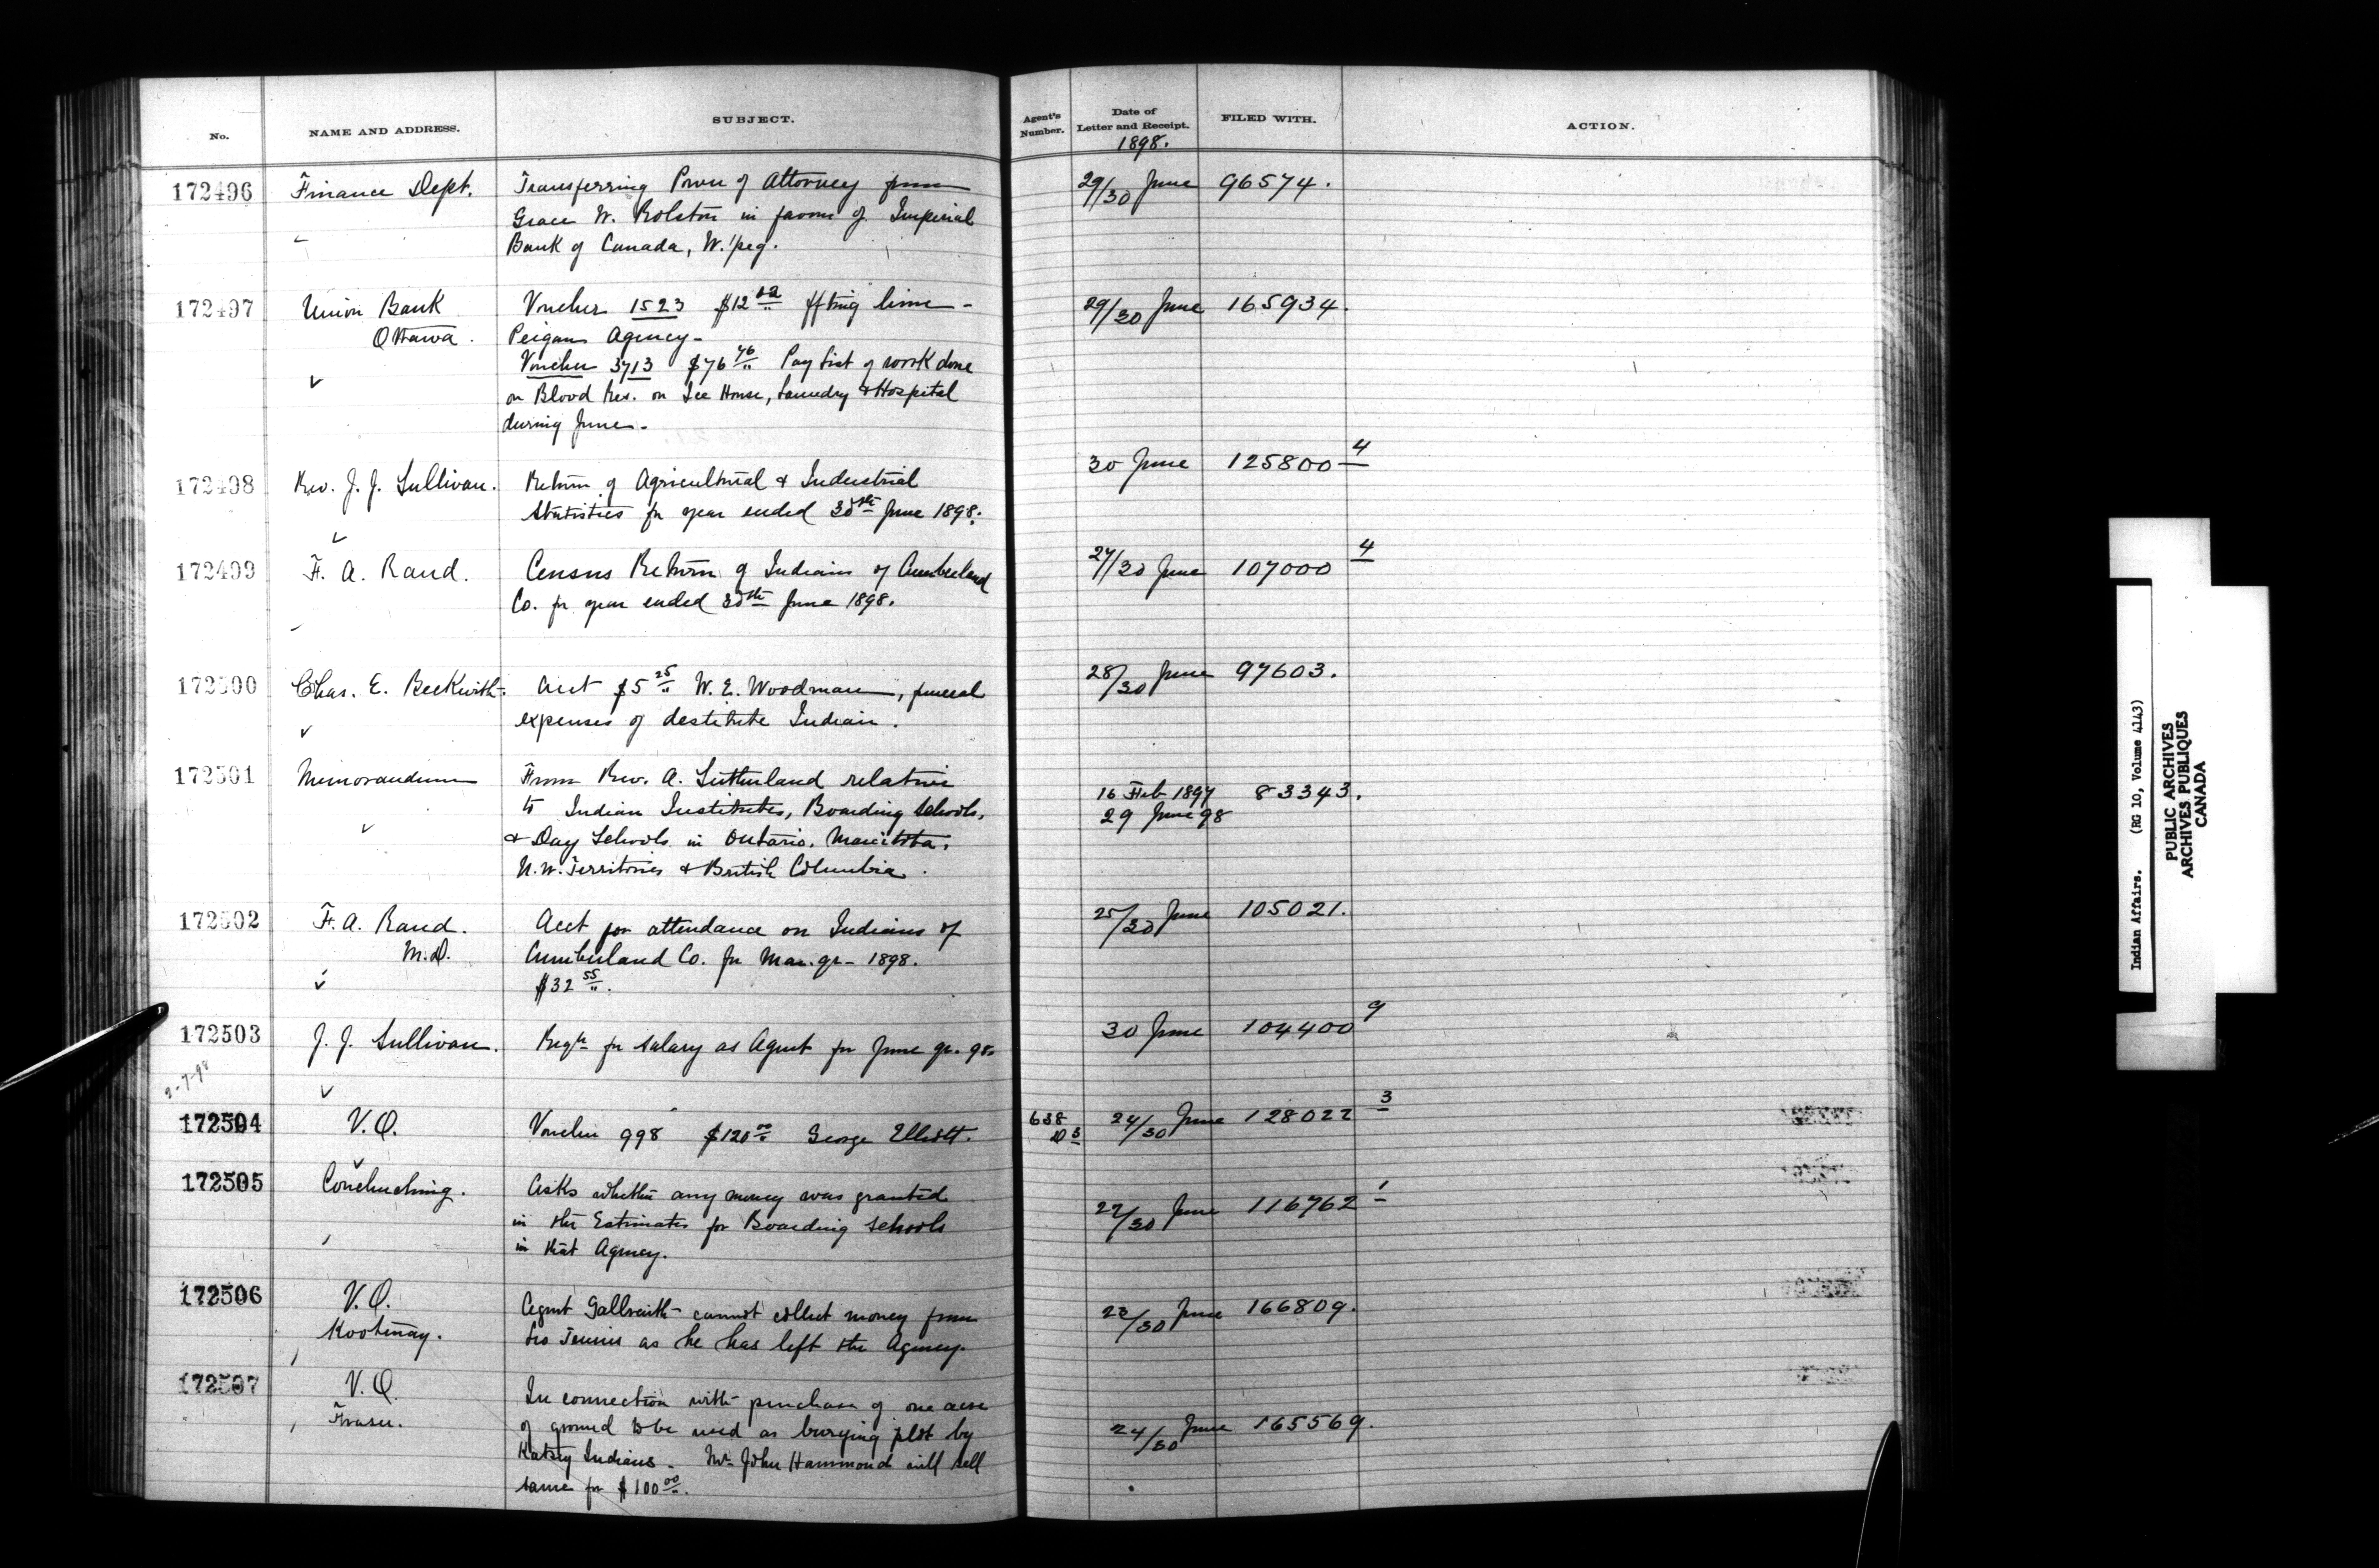 No.
NAME AND ADDRESS.
SUBJECT.
Agent's Number.
Date of Letter and Receipt.
1898.
FILED WITH.
ACTION.
172496 Finance Dept. Transferring Power of Attorney from 29/30 June 96574.
Grace W. Rolston in favour of Imperial
Bank of Canada, W.'peg.
172497 Union Bank Voucher 1523 $12 ffting lime - 29/30 June 165934.
Ottawa. Peigan Agency -
Voucher 3713 $76 46 Pay List of work done
on Blood Res. on Ice House, Laundry & Hospital
during June -
172498 Rev. J. J. Sullivan. Return of Agricultural & Industrial 30 June 125800 4
Statistics for year ended 30th June 1898.
172499 F. A. Rand. Census Return of Indians of Cumberland 27/30 June 107000 4
Co. for year ended 30th June 1898.
172500 Chas. E. Beckwith. Acct $5 25 W. E. Woodman, funeral 28/30 June 97603.
expenses of destitute Indian.
172501 Memorandum From Rev. A. Sutherland relative
to Indian Institutes, Boarding Schools, 16 Feb 1897 83343.
& Day Schools in Ontario, Manitoba, 29 June 98
N.W. Territories & British Columbia.
172502 F. A. Rand. Acct for attendance on Indians of 25/30 June 105021.
M.D. Cumberland Co. for Mar. qr - 1898.
$32 55.
172503 J. J. Sullivan. Reqn for salary as Agent for June qr. 98. 30 June 104400 9
2-7-98
172504 V.O. Voucher 998 $120 00 George Elliott. 638 24/30 June 128022 3
172505 Couchuching. Asks whether any money was granted 27/30 June 116762 1
in the Estimates for Boarding Schools
in that Agency.
172506 V.O. Agent Galbraith - cannot collect money from 23/30 June 166809.
Kootenay. as he has left the Agency.
172507 V.O. In connection with purchase of one acre
Fraser. of ground to be used as burying plot by 24/30 June 165569.
Katsey Indians - Mr. John Hammond will sell
same for $100 00.
Indian Affairs. (RG 10, Volume 4143)
PUBLIC ARCHIVES
ARCHIVES PUBLIQUES
CANADA